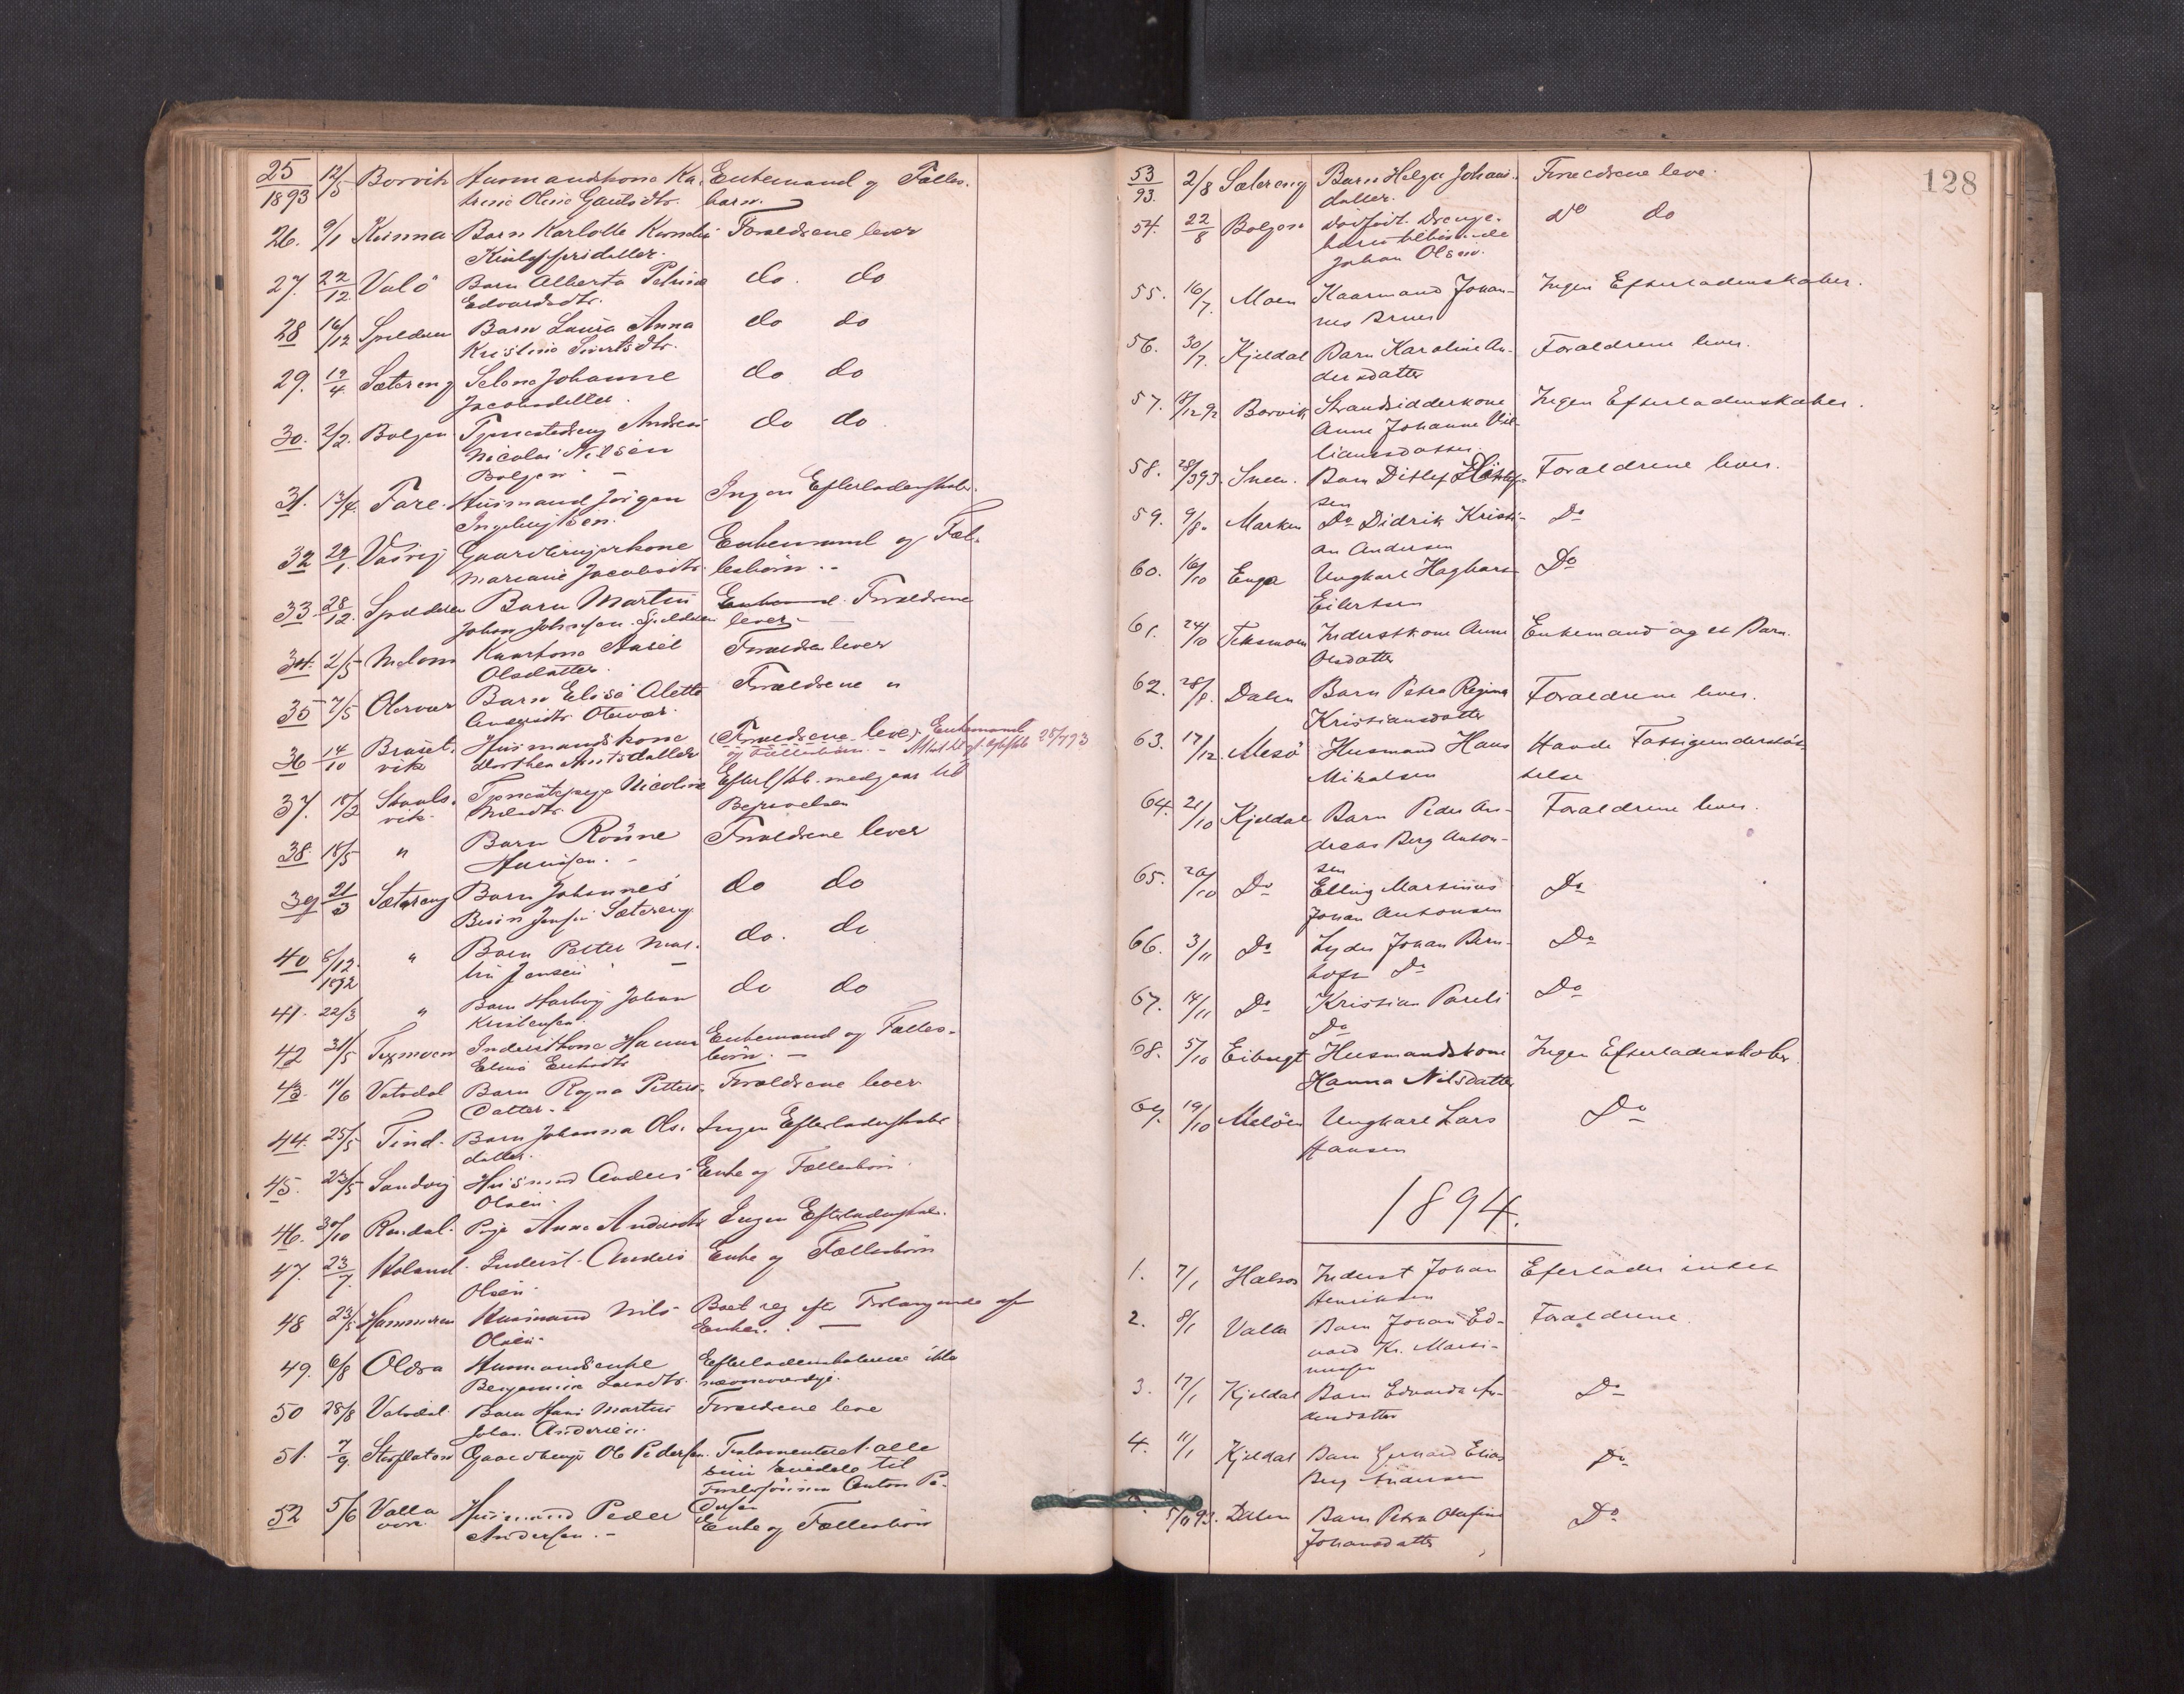 25/1893 12/5 Borvik Husmandskone Ka- Enkemand og Fælles-
trine Oline Gautsdtr. barn.
26. 9/1 Kunna Barn Karlotte Forældrene lever
datter.
27. 22/12 Valö Barn Alberta Petrine do. do
Edvardsdtr.
28 16/12 Spildern Barn Laura Anna do do
Kristine Sivertsdtr.
29. 12/4 Sætereng Selena Johanne do do
Jacobsdatter.
30. 2/2. Bolgen Tjenestedreng Andreas do do
Nicolai Nilsen
Bolgen
31. 13/4. Fore. Husmand Jørgen Ingen Efterladenskaber.
Ingebrigtsen.
32 29/1. Gaardbrugerkone Enkemand og Fæl-
Mariane Jacobsdtr. lesbörn.
33 28/12. Spilderen Barn Martin Enkemand. Forældrene
Johan Johnsen. Spildern lever
34. 2/5 Meløen Aasel Forældre lever
Olsdatter.
35 7/5 Otervær Barn Elise Alette Forældrene "
Otervær.
36 14/10 Braset- Husmandskone (Forældrene leve) Enkemand
vik Dorthea og Fællesbörn. 25/7 93
37. 18/2 Støvls- Tjenestepige Nicoline medgaar til
vik Begravelsen
38. 18/5 " Barn Forældrene lever
Hansen.
39 21/3 Sætereng Barn Johannes do do
Jensen Sætereng
40 8/12. " Barn Petter Mar- do. do
1892 tin Jensen
41. 22/3 " Barn Hartvig Johan do do
Kristensen.
42 31/5 Texmoen Inderstkone Hanna Enkemand og Fælles-
Elina börn.
43. 11/6 Vatsdal Barn Ragna Petters- Forældrene lever
datter.
44. 25/5 Tind. Barn Johanna Ols- Ingen Efterladenskaber
datter.
45. 23/5 Sandvig Husmand Anders Enke og Fællesbörn
Olsen
46. 30/10 Rendal. Pige Anne Andersdtr Ingen Efterladenskab.
47. 23/7. Inderst Anders Enke og Fællesbörn
Olsen
48 23/5 Hammeren Husmand Nils Boet reg efter Forlangende af
Olsen Enken.
49. 6/8 Oldra Husmandsenke Efterladenskaberne ikke
Benjamine nævneværdige.
50 28/8 Vatsdal. Barn Hans Martin Forældrene leve
Johan Andersen.
51. 7/9. Støtpladsen Gaardbruger Ole Pedersen. Testamenteret alle
sine Eiendele til
Fostersønnen Anton Pe-
dersen
52 5/6 Valla Husmand Peder Enke og Fællesbörn
Andersen.
128
53/93. 2/8 Sætereng Barn Helga Johans- Forældrene leve.
datter.
54. 22/8 Bolgen Dødfødt Drenge- do do
barn tilhörende
Johan Olsen.
55. 16/7. Moen Kaarmand Johan- Ingen Efterladenskaber.
nes
56. 30/7. Kjeldal Barn Karoline An- Forældrene lever.
dersdatter
57. 18/12 92 Borvik Strandsidderkone Ingen Efterladenskaber.
Anne Johanne Vil-
liamsdatter
58. 28/3 93. Barn Ditlef Ditlef- Forældrene lever.
sen
59. 9/8. Marken Do Didrik Kristi- Do
an Andersen
60. 16/10 Enga Ungkarl Hagbart Do
Eilertsen
61. 24/10 Teksmoen Inderstkone Anne Enkemand og et Barn.
Olsdatter
62. 28/8. Dalen Barn Petra Regina Forældrene lever.
Kristiansdatter
63. 17/12. Mesö Husmand Hans Havde Fattigunderstöt-
Mikalsen telse
64. 21/10 Kjeldal Barn Peder An- Forældrene lever.
dreas Berg Anton-
sen
65. 26/10 Do Elling Martinus Do
Johan Antonsen
66. 3/11 Do Lyder Johan Bern- Do
hoft Do
67. 14/11 Do Kristian Pareli Do
Do
68. 5/10 Eibugt Husmandskone Ingen Efterladenskaber.
Hanna Nilsdatter
69. 19/10 Melöen Ungkarl Lars Do
Hansen
1894.
1. 7/1 Halsos Inderst Johan Efterlader intet
Henriksen
2. 8/1 Valla Barn Johan Ed- Forældrene
vard Kr. Marti-
nussen
3. 17/1 Kjeldal Barn Edvarda An-
dersdatter Do
4. 11/1 Kjeldal Barn Gerhard Elias Do
Berg Andersen
5/11 93. Dalen Barn Petra Olufine Do
Johansdatter